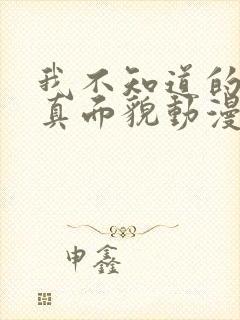 我不知道的
真而貌動漫
申鑫